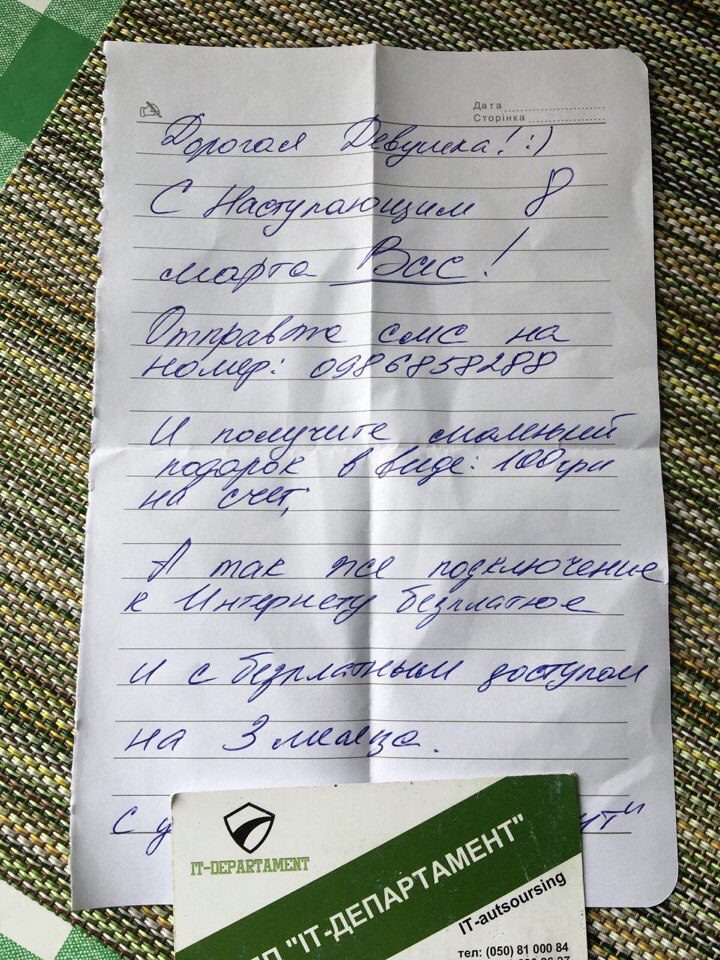 Дата
Сторінка
Дорогая Девушка! :)
С Наступающим 8
марта Вас!
Отправте смс на
номер: 0986858288
И получите маленький
подарок в виде: 100 грн
на счет,
А так же подключение
к Интернету безплатное
и с безплатным доступом
на 3 месяца.
с у
ут"
IT-DEPARTAMENT
ПП "ІТ-ДЕПАРТАМЕНТ"
IT-autsoursing
тел: (050) 81 000 84